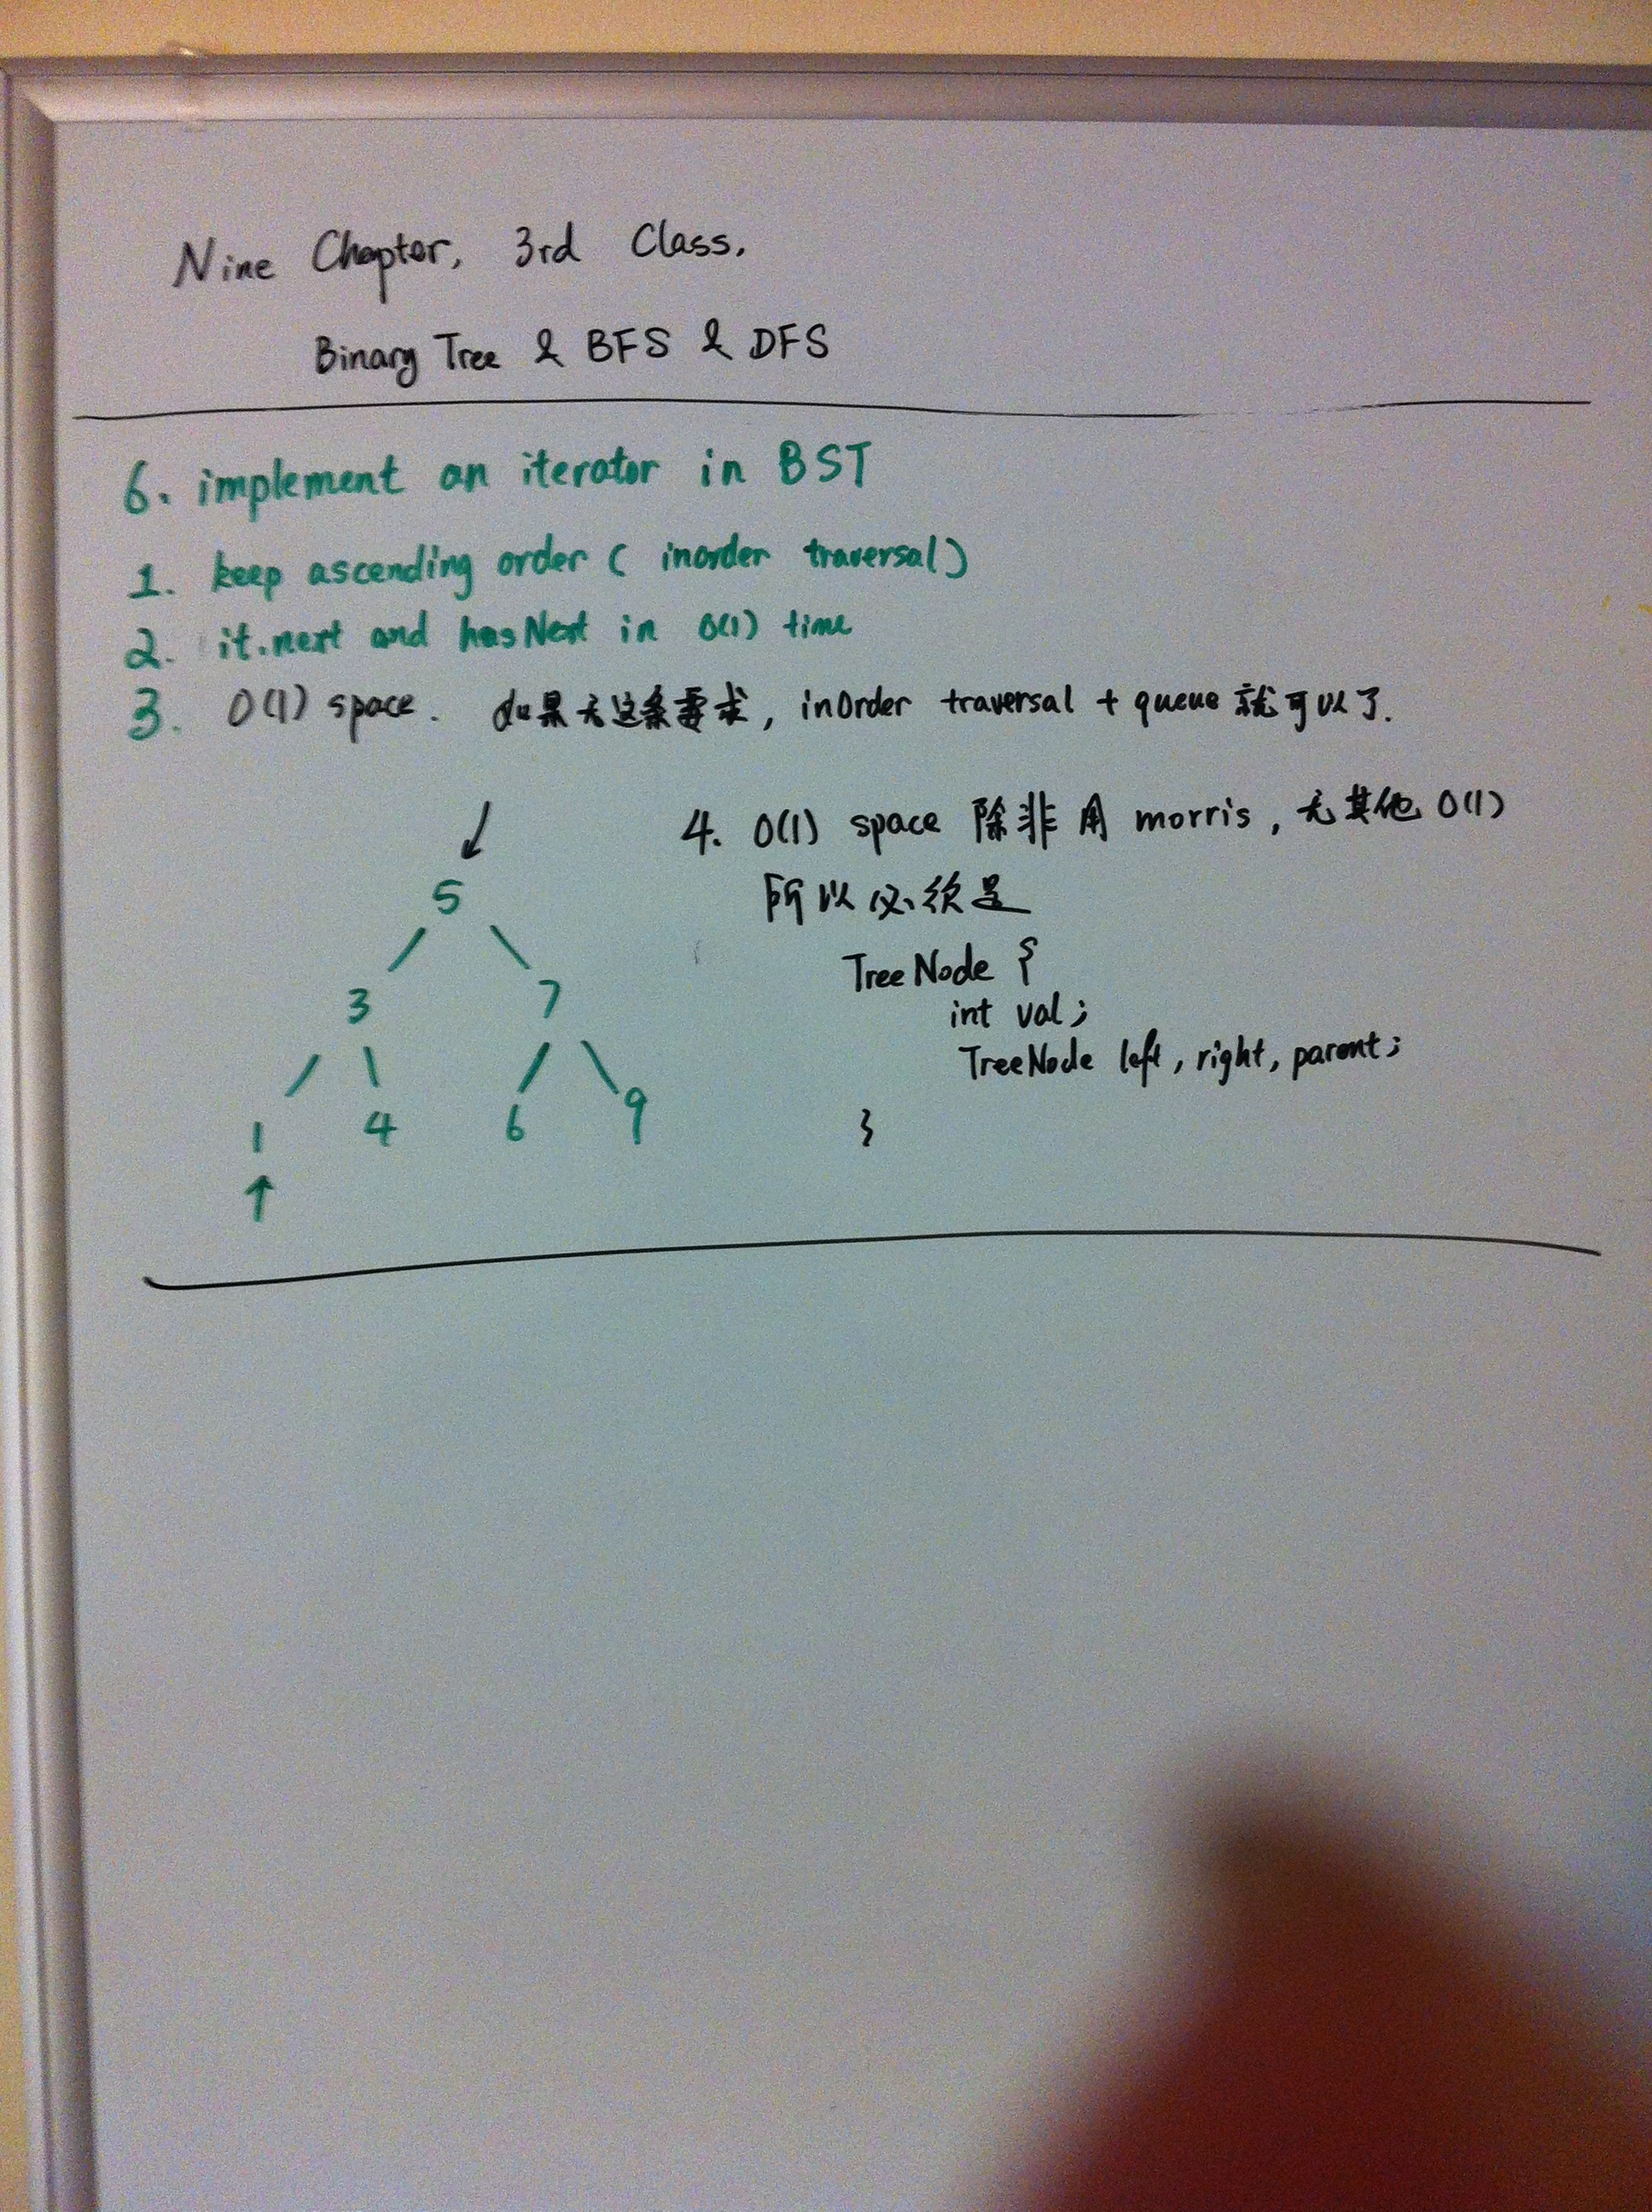 Nine Chapter, 3rd Class.
Binary Tree & BFS & DFS
6. implement an iterator in BST
1. keep ascending order ( inorder traversal)
2. it.next and hasNext in O(1) time
3. O(1) space. 如果无这条要求, inOrder traversal + queue 就可以了.
4. O(1) space 除非用 morris, 无其他 O(1)
所以必须是
TreeNode {
int val;
TreeNode left, right, parent;
}
5
3 7
1 4 6 9